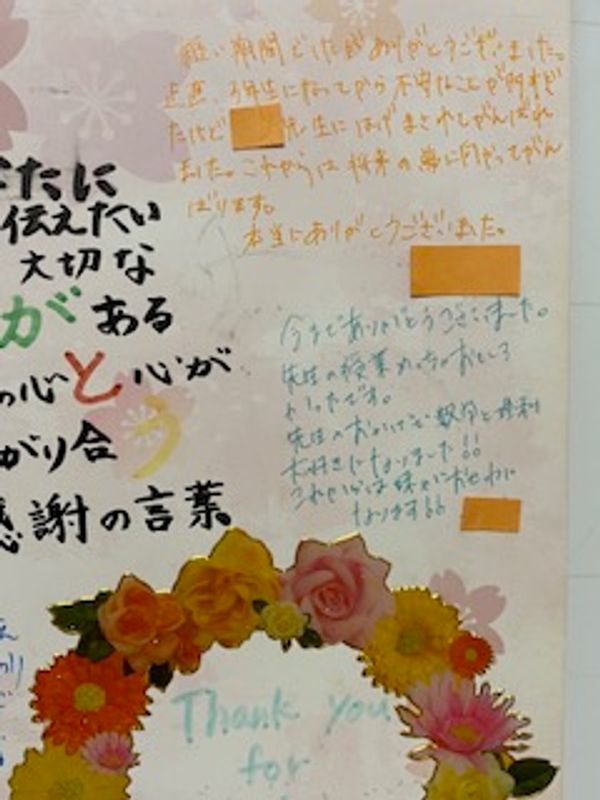 短い期間でしたがありがとうございました。
正直、3年生になってから不安なことが
たけど 先生にはげまされてがんばれ
ました。これからは将来の夢に向かってがん
ばります。
本当にありがとうございました。
今までありがとうございました。
先生の授業めっちゃおもしろ
かったです。
先生のおかげで数学と
大好きになりました!!
これからは
なります!!
たに
伝えたい
大切な
がある
の心と心が
がり合う
感謝の言葉
Thank you
for